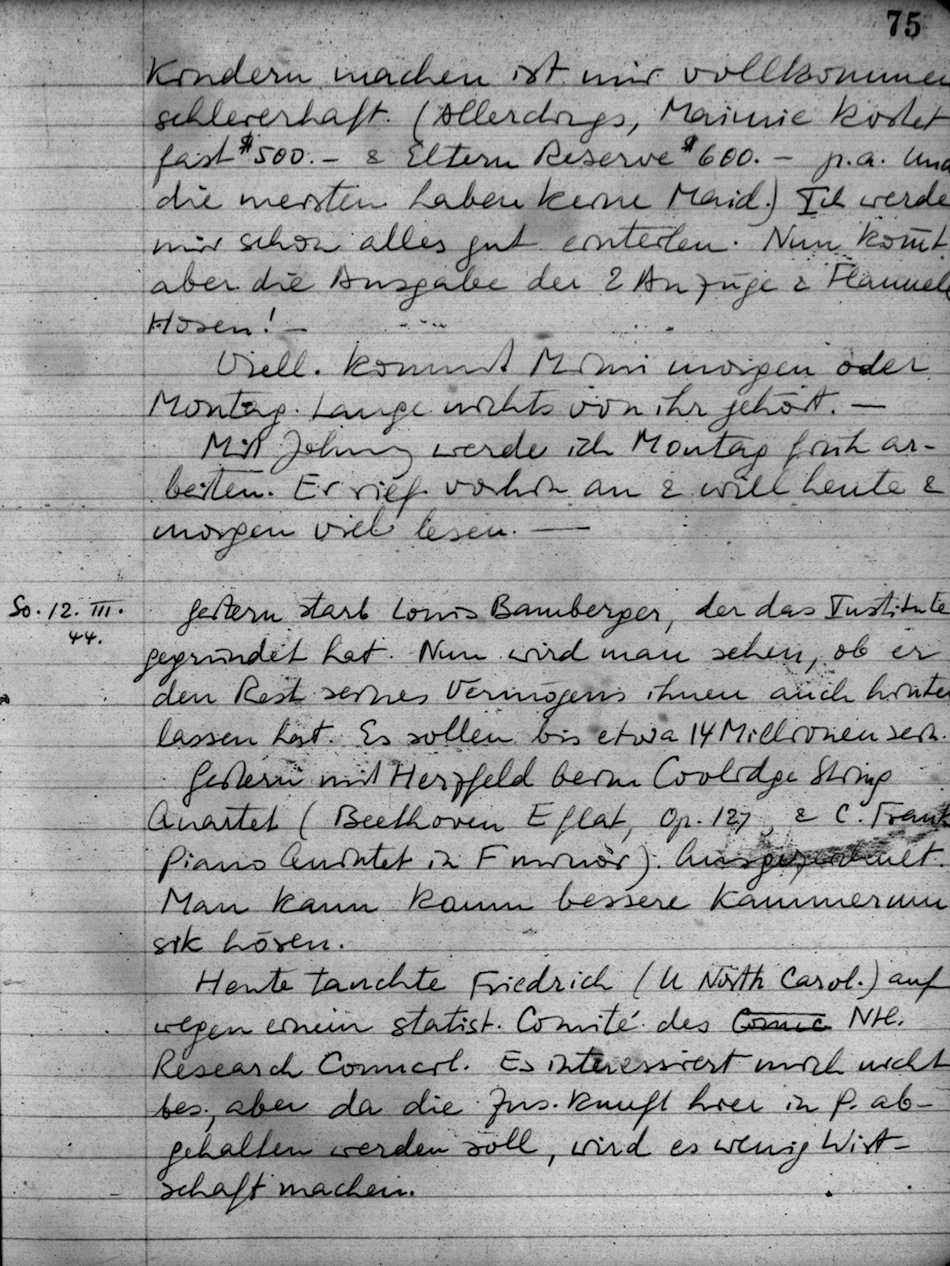 75
Kindern machen ist mir vollkommen
schleierhaft. (Allerdings, Maimie kostet
fast $500.– & Eltern Reserve $600.– p.a. und
die meisten haben keine Maid.) Ich werde
mir schon alles gut einteilen. Nun kom̄t
aber die Ausgabe der 2 Anzüge & Flanell
Hosen! –
Viell. kommt Mimi morgen oder
Montag. Lange nichts von ihr gehört. —
Mit Johnny werde ich Montag früh ar-
beiten. Er rief vorhin an & will heute &
morgen viel lesen. —
So. 12. III. 44.
Gestern starb Louis Bamberger, der das Institute
gegründet hat. Nun wird man sehen, ob er
den Rest seines Vermögens ihnen auch hinter
lassen hat. Es sollen bis etwa 14 Millionen sein.
Gestern mit Herzfeld beim Coolidge String
Quartet (Beethoven E flat, Op. 127, & C. Frank
Piano Quintet in F minor). Ausgezeichnet.
Man kann kaum bessere Kammermu
sik hören.
Heute tauchte Friedrich (U North Carol.) auf
wegen einem statist. Comité des Comic Ntl.
Research Council. Es interessiert mich nicht
bes., aber da die Zus.kunft hier in P. ab-
gehalten werden soll, wird es wenig Wirt-
schaft machen.